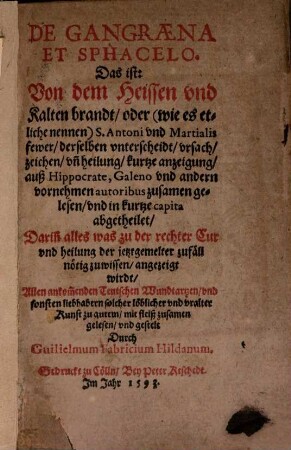 DE GANGRÆNA
ET SPHACELO.
Das ist:
Von dem Heissen vnd
Kalten brandt/ oder (wie es et-
liche nennen) S. Antoni vnd Martialis
fewer/ derselben vnterscheidt/ vrsach/
zeichen/ vñ heilung/ kurtze anzeigung/
auß Hippocrate, Galeno vnd andern
vornehmen autoribus zusamen ge-
lesen/ vnd in kurtze capita
abgetheilet/
Dariñ alles was zu der rechter Cur
vnd heilung der jetztgemelter zufäll
nötig zuwissen/ angezeigt
wirdt/
Allen ankom̃enden Teutschen Wundtartzen/ vnd
sonsten liebhabern solcher löblicher vnd vralter
Kunst zu gutem/ mit fleiß zusamen
gelesen/ vnd gestelt
Durch
Guilielmum Fabricium Hildanum.
Gedruckt zu Cölln/ Bey Peter Keschedt.
Im Jahr 1593.